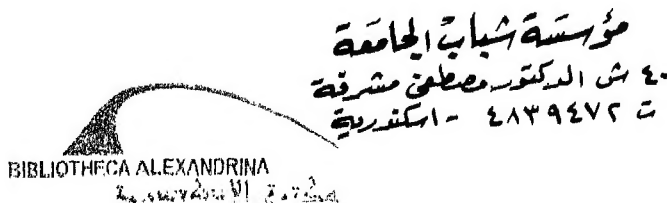 مؤسسة شباب الجامعة
٤٠ ش الدكتور مصطفى مشرفة
ت ٤٨٣٩٤٧٢ - اسكندرية
BIBLIOTHECA ALEXANDRINA
مكتبة الإسكندرية